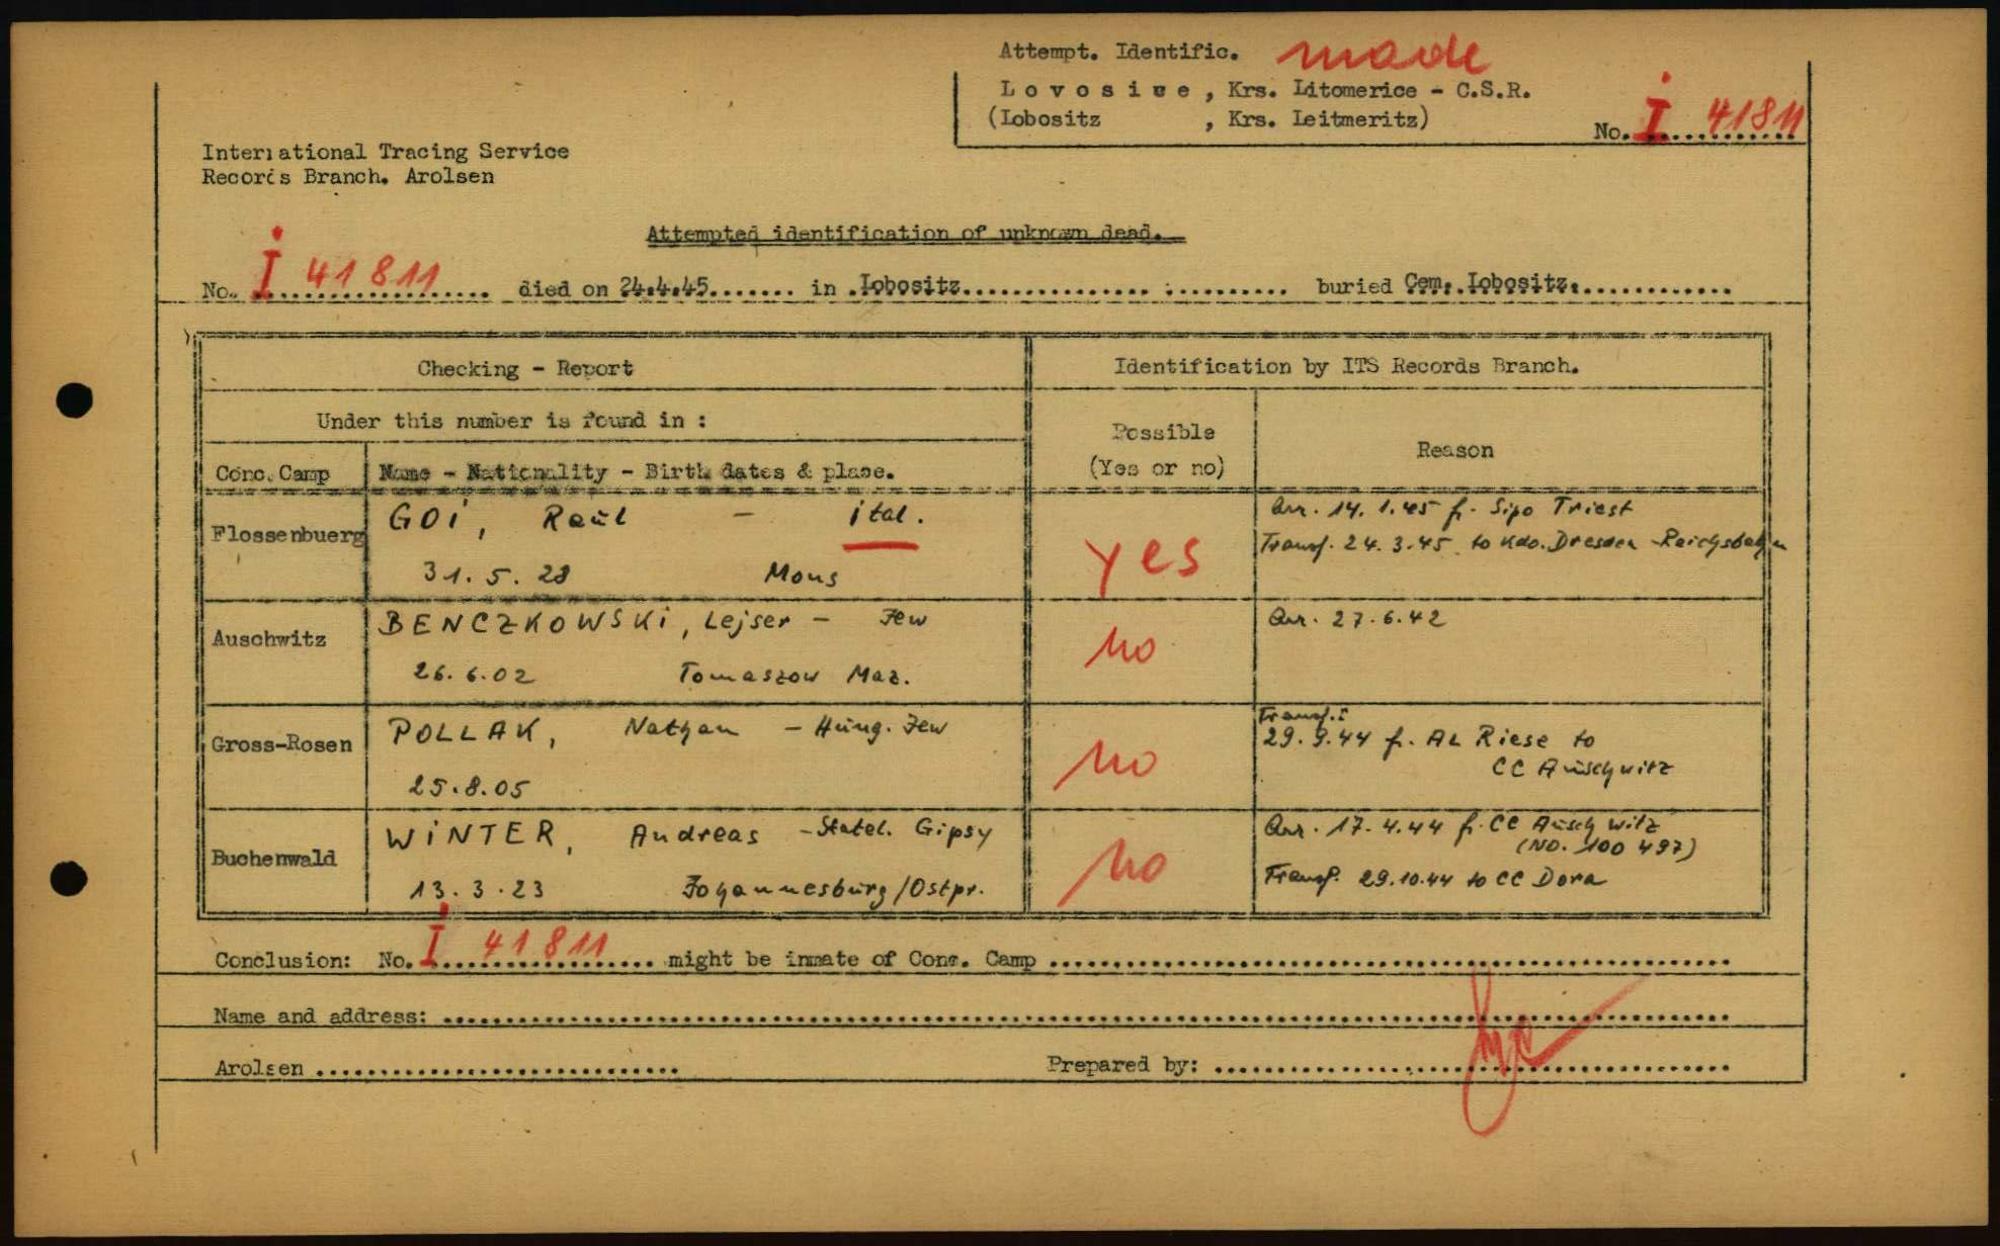 Attempt. Identific. made
Lovosice, Krs. Litomerice - C.S.R.
(Lobositz , Krs. Leitmeritz)
No. I 41811
International Tracing Service
Records Branch. Arolsen
Attempted identification of unknown dead.
No. I 41811 died on 24.4.45....... in .Lobositz............... buried Cem. Lobositz.............
Checking - Report
Identification by ITS Records Branch.
Under this number is found in :
Possible
(Yes or no)
Reason
Conc. Camp
Name - Nationality - Birth dates & place.
Flossenbuerg
GOI, Raul - ital.
31. 5. 28 Mons
yes
Arr. 14. 1.45 f. Sipo Triest
Transf. 24. 3.45 to Kdo. Dresden-Reichsbahn
Auschwitz
BENCZKOWSKI, Lejser - Jew
26. 6.02 Tomaszow Maz.
no
Arr. 27.6.42
Gross-Rosen
POLLAK, Nathan - Hung. Jew
25.8.05
no
Transf.:
29. 9.44 f. AL Riese to
CC Auschwitz
Buchenwald
WINTER, Andreas - Statel. Gipsy
13. 3. 23 Johannesburg/Ostpr.
no
Arr. 17.4.44 f. CC Auschwitz
(No. 100 497)
Transf. 29.10.44 to CC Dora
Conclusion: No. I 41811 might be inmate of Conc. Camp ..............................
Name and address: ..............................
Arolsen ..............................
Prepared by: ..............................